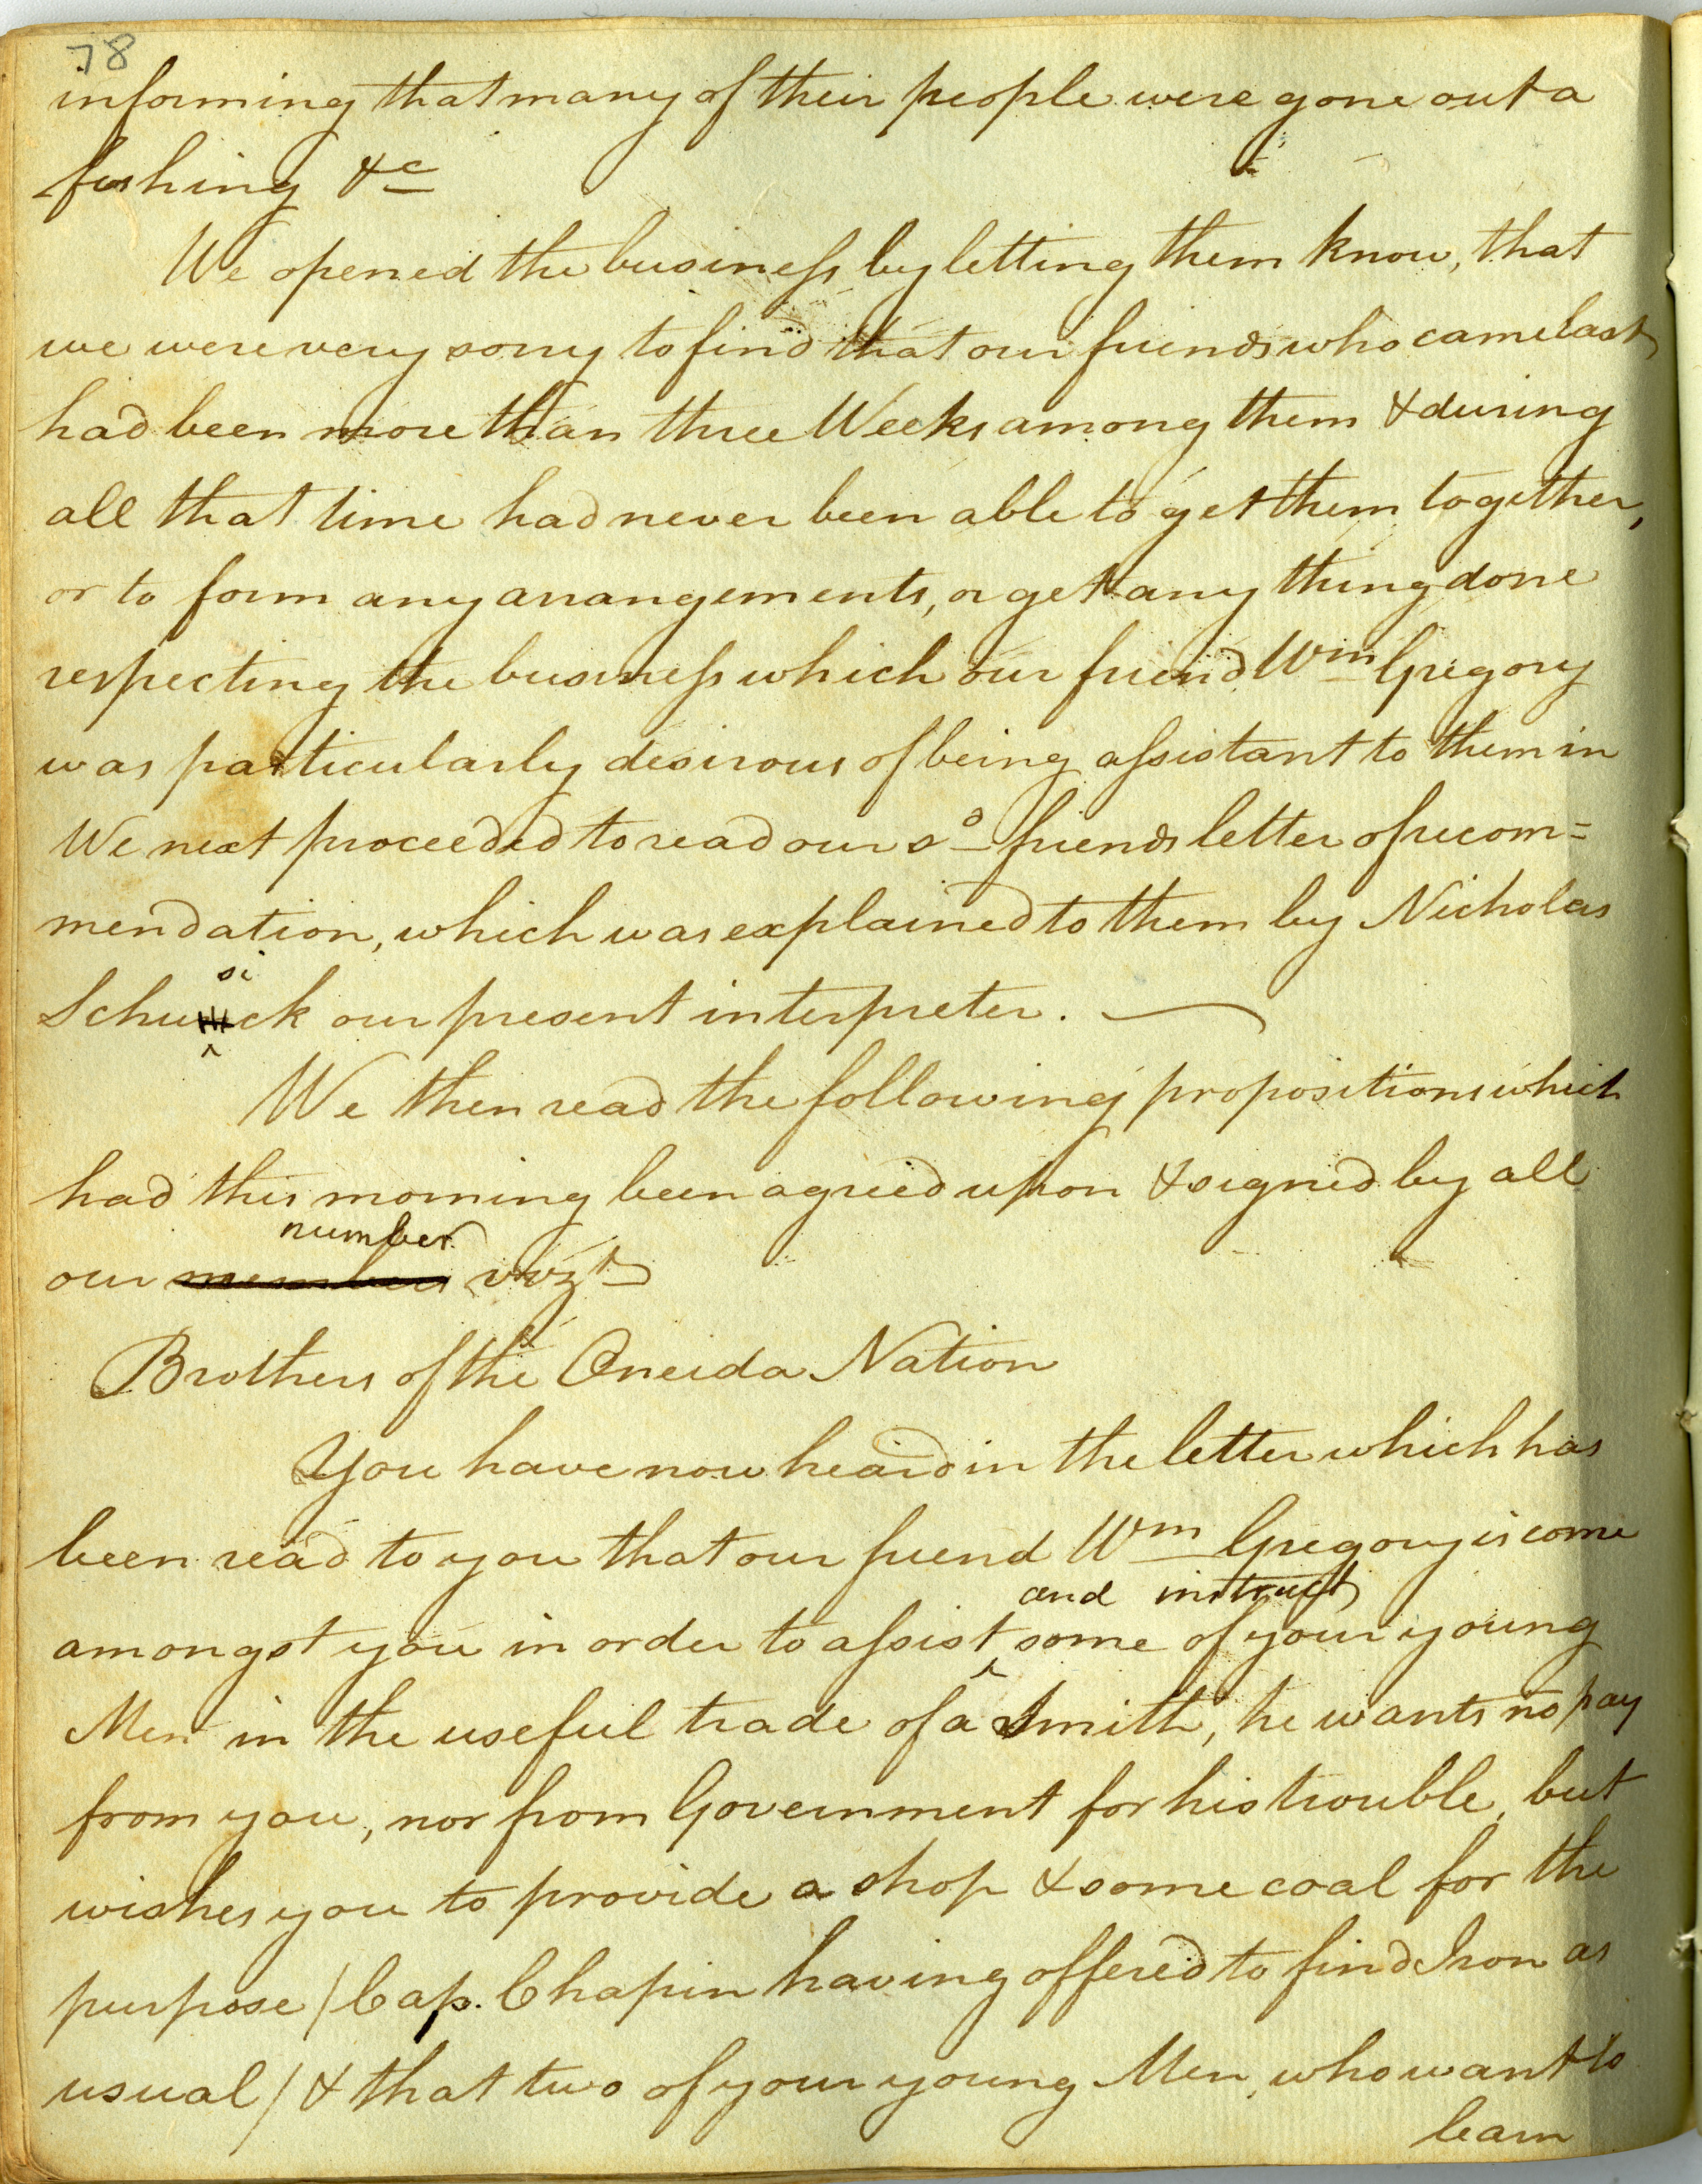 78
informing that many of their people were gone out a
fishing &c
We opened the business by letting them know, that
we were very sorry to find that our friends who came last
had been more than three Weeks among them & during
all that time had never been able to get them together,
or to form any arrangements, or get any thing done
respecting the business which our friend Wm Gregory
was particularly desirous of being assistant to them in
We next proceeded to read our sd friends letter of recom=
mendation, which was explained to them by Nicholas
si
Schuck our present interpreter.
We then read the following propositions which
had this morning been agreed upon & signed by all
number
our members vizt
Brothers of the Oneida Nation
You have now heard in the letter which has
been read to you that our friend Wm Gregory is come
and instruct
amongst you in order to assist ^ some of your young
Men in the useful trade of a Smith, he wants no pay
from you, nor from Government for his trouble, but
wishes you to provide a shop & some coal for the
purpose / Cap. Chapin having offered to find Iron as
usual / & that two of your young Men, who want to
learn